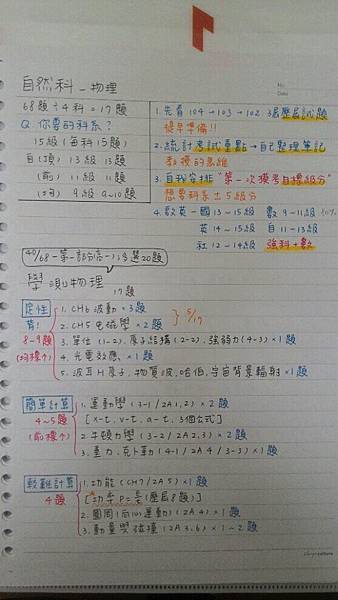 No.
Date
自然科－物理
68題÷4科=17題
Q.你要的科系?
15級(每科15題)
自(頂) 13級 13題
(前) 11級 11題
(均) 9級 9~10題
1.先看104→103→102 3屆歷屆試題
提早準備!!
2.統計考試重點→自己整理筆記
教授的思維
3.自我安排"第一次摸考目標級分"
想要科系±5級分
4.欺英－國13-15級 數9-11級
英14-15級 自11-13級
社12-14級 強科+數
40/68－第一部分高一
20題
物理
17題
定性
背!
8~9題
(均標↑)
1.CH6波動×3題
2.CH5電磁學×2題
3.單位(1-2).原子結構(2-2).強弱力(4-3)×1題
4.光電效應、×1題
5.波耳H原子,物質波,哈伯,宇宙背景輻射×1題
簡單計算
4~5題
(前標↑)
1.運動學(3-1/2A1,2)×2題
[x-t.v-t.a-t.3個公式]
2.牛頓力學(3-2/2A2,3)×2題
3.重力.克卜勒(4-1/2A4/3-3)×1題
較難計算
4題
1.功能(CH7/2A5)×1題
2.圓周(向心)運動(2A4)×1題
3.動量與碰撞(2A3,6)×1~2題